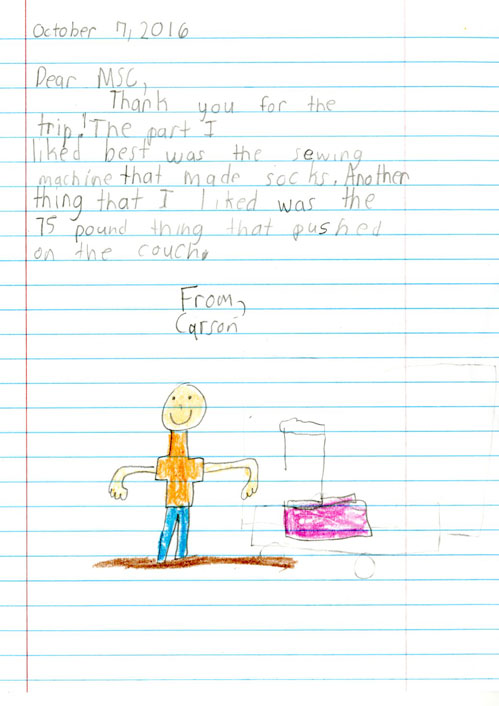 October 7, 2016
Dear MSC,
Thank you for the
trip! The part I
liked best was the sewing
machine that made socks. Another
thing that I liked was the
75 pound thing that pushed
on the couch.
From,
Carson